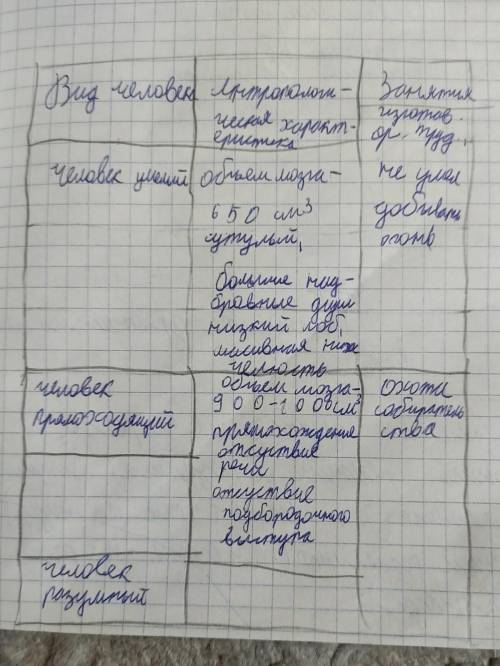 Вид человека
Антропологи-
ческая характ-
еристика
Занятия
изготов.
ор. труд.
человек умелый
объем мозга-
650 см³
сутулый,
большие над-
бровные дуги
низкий лоб,
массивная ниж
челюсть
не умел
добывать
огонь
человек
прямоходящий
объем мозга-
900-1000см³
прямохождение
отсуствие
речи
отсуствие
подбородочного
выступа
охота
собиратель
ства
человек
разумный